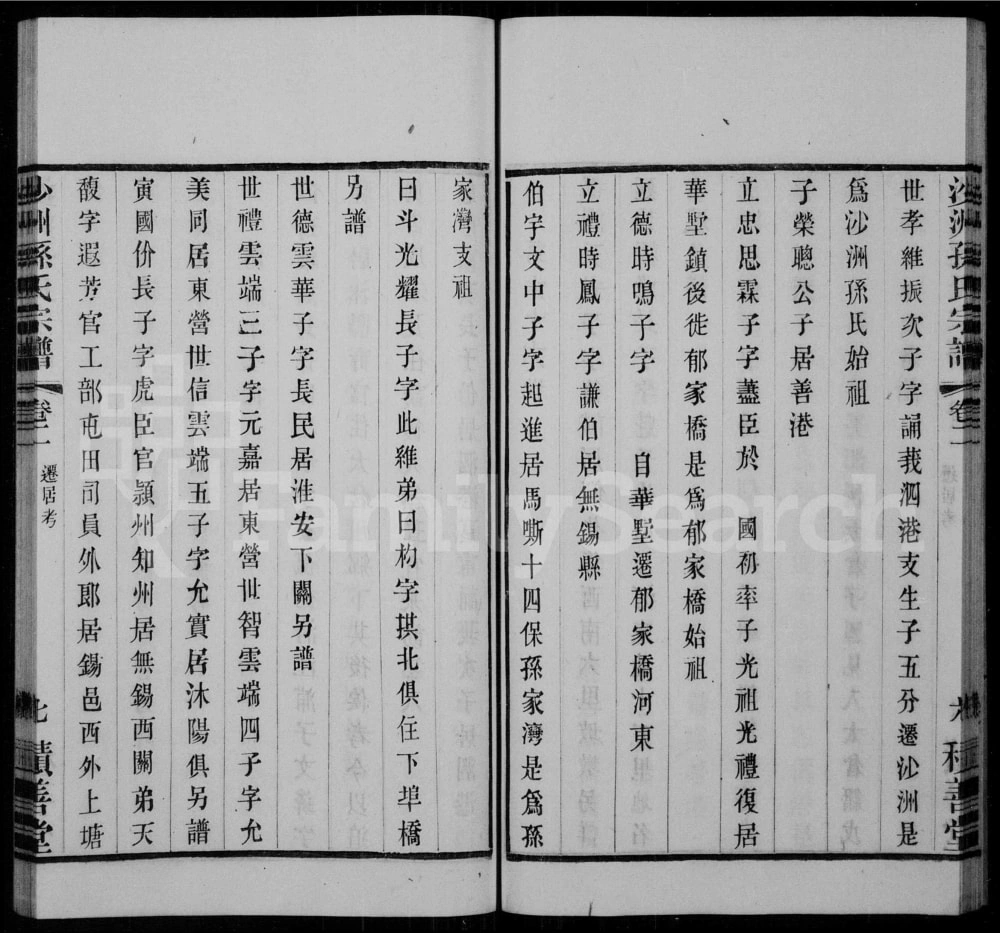 沙洲孫氏宗譜 卷二 遷居考 六 積善堂
世孝維振次子字誦莪泗港支生子五分遷沙洲是
爲沙洲孫氏始祖
子榮聰公子居善港
立忠思霖子字藎臣於 國初率子光祖光禮復居
華墅鎮後徙郁家橋是爲郁家橋始祖
立德時鳴子字 自華墅遷郁家橋河東
立禮時鳳子字謙伯居無錫縣
伯宇文中子字起進居馬嘶十四保孫家灣是爲孫
家灣支祖
曰斗光耀長子字此維弟曰杓字拱北俱住下埠橋
另譜
世德雲華子字長民居淮安下關另譜
世禮雲端三子字元嘉居東營世智雲端四子字允
美同居東營世信雲端五子字允實居沐陽俱另譜
寅國价長子字虎臣官潁州知州居無錫西關弟天
馥字遐芳官工部屯田司員外郎居錫邑西外上塘
沙洲孫氏宗譜 卷二 遷居考 七 積善堂
FamilySearch